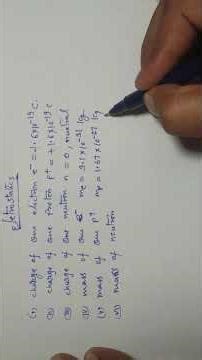 Eletrostatics
(i) charge of one electron e⁻ = -1.6x10⁻¹⁹ C.
(ii) charge of one proton p⁺ = +1.6x10⁻¹⁹ C
(iii) charge of one neutron n = 0, neutral
(iv) mass of one e⁻ me = 9.1x10⁻³¹ kg.
(v) mass of one p⁺ mp = 1.67x10⁻²⁷ kg
(vi) mass of neutron